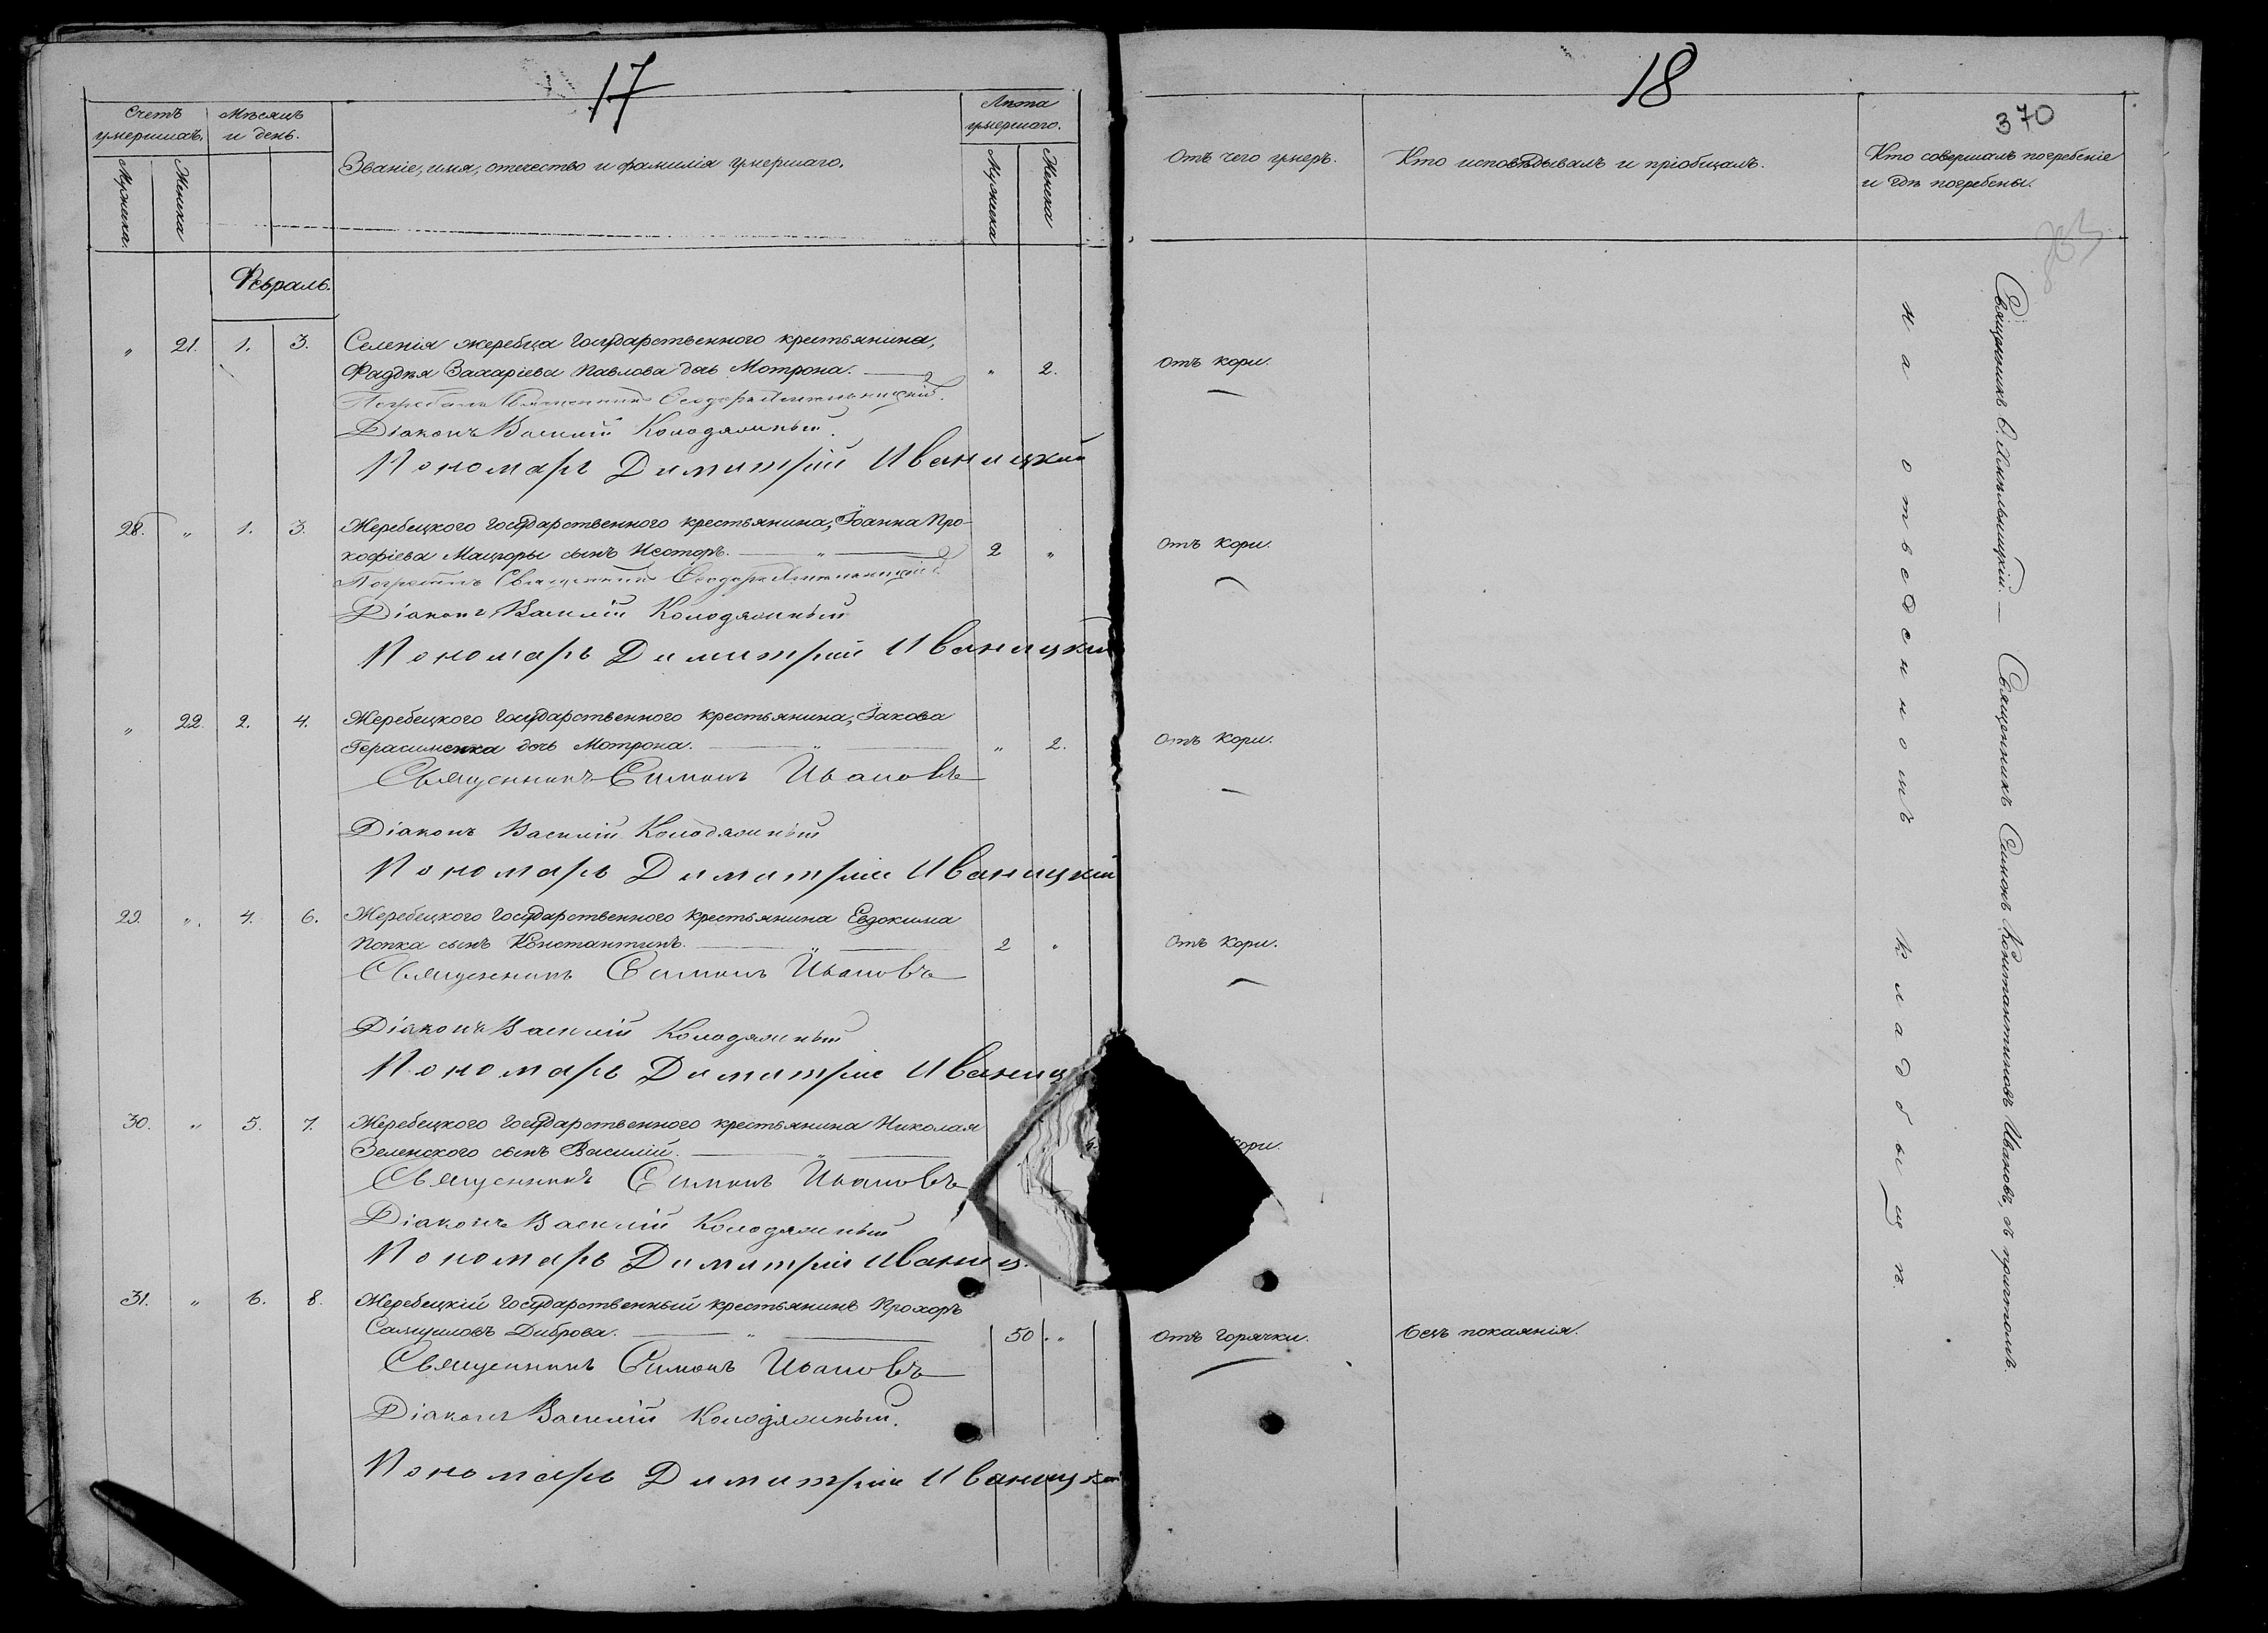 17
Счетъ умершихъ.
Мѣсяцъ и день.
Званіе, имя, отчество и фамилія умершаго.
Лѣта умершаго.
Мужеска.
Женска
Мужеска
Женска
Февраль.
" 21. 1. 3. Селенія Жеребца Государственного крестьянина,
Фаддѣя Захаріева Павлова дочь Мотрона. " 2.
Погребалъ Священникъ Ѳеодоръ Мательницкій.
Діаконъ Василій Колодяжный.
Пономарь Димитрій Иваницкій
28. " 1. 3. Жеребецкого Государственного крестьянина, Іоанна Про-
кофіева Мацюры сынъ Несторъ. " 2 "
Священникъ Ѳеодоръ
Діаконъ Василій Колодяжный
Пономарь Димитрій Иваницкій
" 22. 2. 4. Жеребецкого Государственного крестьянина, Іакова
Герасименка дочь Мотрона. " " 2.
Священникъ Симонъ Ивановъ
Діаконъ Василій Колодяжный
Пономарь Димитрій Иваницкій
29. " 4. 6. Жеребецкого Государственного крестьянина Евдокима
Попка сынъ Константинъ. " 2 "
Священникъ Симонъ Ивановъ
Діаконъ Василій Колодяжный
Пономарь Димитрій Иваниц
30. " 5. 7. Жеребецкого Государственного крестьянина Николая
Зеленского сынъ Василій. "
Священникъ Симонъ Ивановъ
Діаконъ Василій Колодяжный
Пономарь Димитрій Иваниц.
31. " 6. 8. Жеребецкій Государственный крестьянинъ Прохоръ
Самуиловъ Диброва. " 50. "
Священникъ Симонъ Ивановъ
Діаконъ Василій Колодяжный.
Пономарь Димитрій Иваницкій
18
370
Отъ чего умеръ.
Кто исповѣдывалъ и пріобщалъ.
Кто совершалъ погребеніе
и гдѣ погребены.
Отъ кори.
Отъ кори.
Отъ кори.
Отъ кори.
кори.
Отъ горячки.
безъ покаянія.
на отведенномъ кладбыщѣ.
Священникъ Ѳ. — Священникъ Симонъ Константиновъ Ивановъ, съ причтомъ.